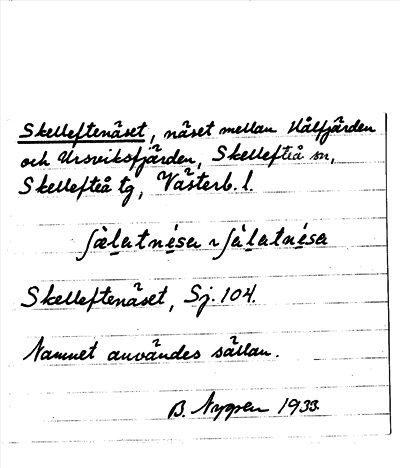 Skelleftenäset, näset mellan Hålfjärden
och Ursviksfjärden, Skellefteå sn,
Skellefteå tg, Västerb. l.
ʃàlatnésa ~ ʃàlatnésa
Skelleftenäset, Sj. 104.
Namnet användes sällan.
B. Nygren 1933.